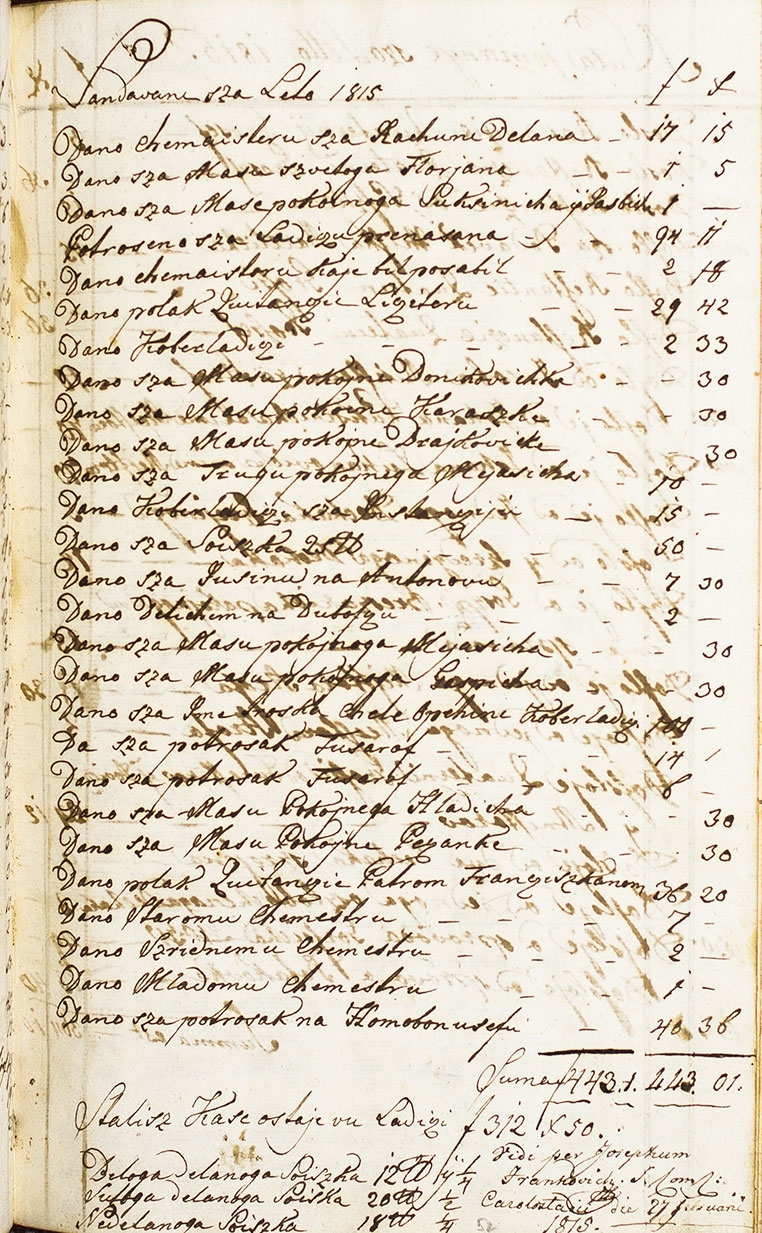 Vandavanu sza Leto 1815 f x
Dano chemaisteru sza Rachune Delana — 17 15
Dano sza Masu szvetoga Florjana — 1 5
Dano sza Mase pokoinoga 1 —
Potroseno sza Ladiczu prenasana — 94 11
Dano chemaistoru kaje bil posabil — 2 18
Dano polak Quitanczie Ligiteru — 29 42
Dano Koberladiczi — 2 33
Dano sza Masu pokojne Donikovichke — 30
Dano sza Masu pokoine Karaszke — 30
Dano sza Masu pokojne Drajkovicke 30
Dano sza Trugu pokojnega Mijasicha 10 —
Dano Koberladiczi sza — 15 —
Dano sza Soiszka 25 ℔ 50 —
Dano sza Jusinu na Antonovu — 7 30
Dano Detichem na Dubofzu — 2 —
Dano sza Masu pokojnoga Mijasicha — 30
Dano sza Masu pokojnoga Gaspicha 30
Dano sza Ime broska Chele Opchine Koberladiz. —
Da sza potrosak Fusaraf — 14 1
Dano sza potrosak Fusaraf — 6 —
Dano sza Masu Pokojnega Hladicha — 30
Dano sza Masu Pokojne Peganke — 30
Dano polak Quitanczie Patrom Francziszkanom 36 20
Dano Staromu Chemestru — 7 —
Dano Szridnemu Chemestru — 2 —
Dano Mladomu Chemestru — 1 —
Dano sza potrosak na Homobonusefu — 40 36
Suma f 443.1. 443. 01.
Stalisz Kase ostaje vu Ladiczi f 312 x 50.
Vidi per Josephum
Beloga delanoga Soiszka 12 ℔ 1/4 Frankovich
Sutoga delanoga Soiska 20 ℔ 1/2 Carolostadii die 27 Januarii
Nedelanoga Soiszka 18 ℔ 1/4 1815.